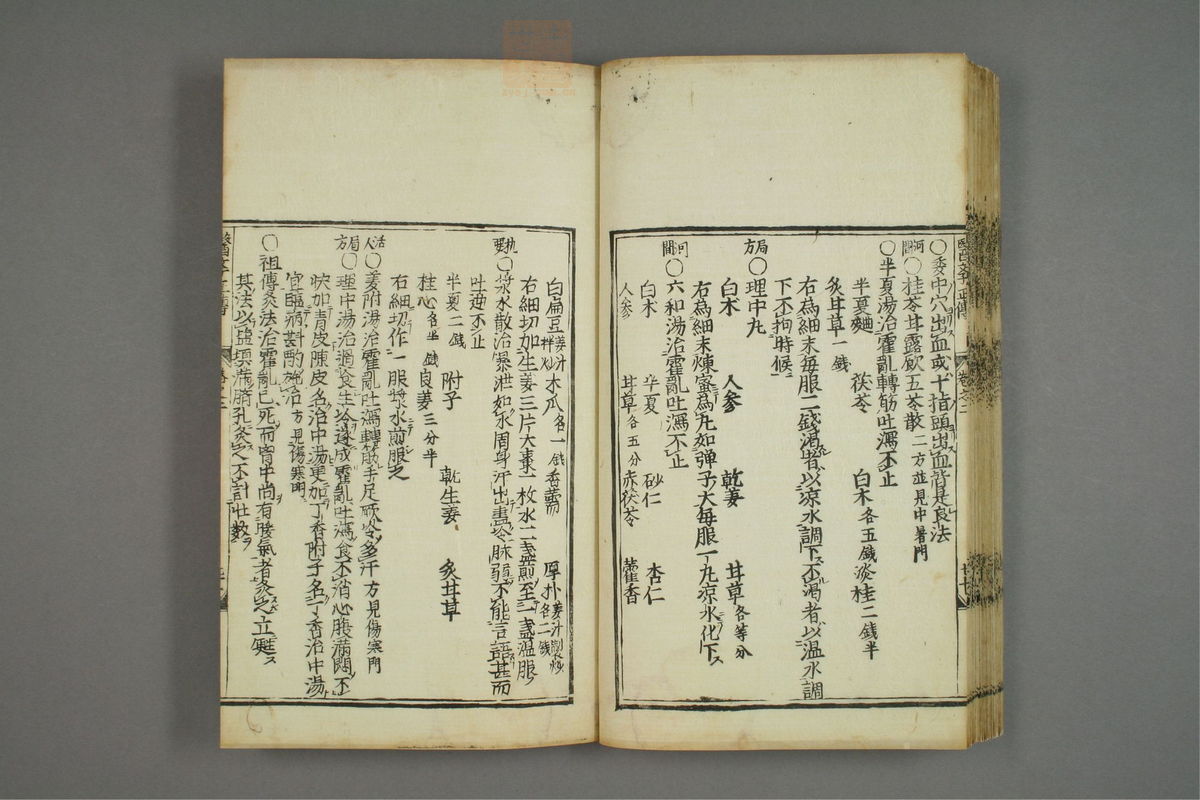 ○委中穴出血或十指頭出血皆是良法
河間○桂苓甘露飲五苓散二方並見中暑門
○半夏湯治霍亂轉筋吐瀉不止
半夏麯 茯苓 白朮各五錢淡桂二錢半
炙甘草一錢
右為細末每服二錢渴者以凉水調下不渴者以温水調
下不拘時候
局方○理中丸
白朮 人參 乾姜 甘草各等分
右為細末煉蜜為丸如弾子大每服一丸凉水化下
河間○六和湯治霍亂吐瀉不止
白朮 半夏 砂仁 杏仁
人參 甘草各五分赤茯苓 藿香
白扁豆姜汁拌炒木瓜各一錢香薷 厚朴姜汁製炒各二錢
右細切加生姜三片大棗一枚水二盞煎至一盞温服
執要○漿水散治暴泄如水周身汗出盡冷脉弱不能言語甚而
吐逆不止
半夏二錢 附子 乾生姜 炙甘草
桂心各五錢良姜三分半
右細切作一服漿水煎服之
活人○姜附湯治霍亂吐瀉轉筋手足厥冷多汗方見傷寒門
局方○理中湯治過食生冷遂成霍亂吐瀉食不消心腹滿悶不
快加青皮陳皮名治中湯更加丁香附子名丁香治中湯
宜臨病斟酌施治方見傷寒門
○祖傳灸法治霍亂已死而胷中尚有暖氣者灸之立甦
其法以塩填滿臍孔灸之不計壯數